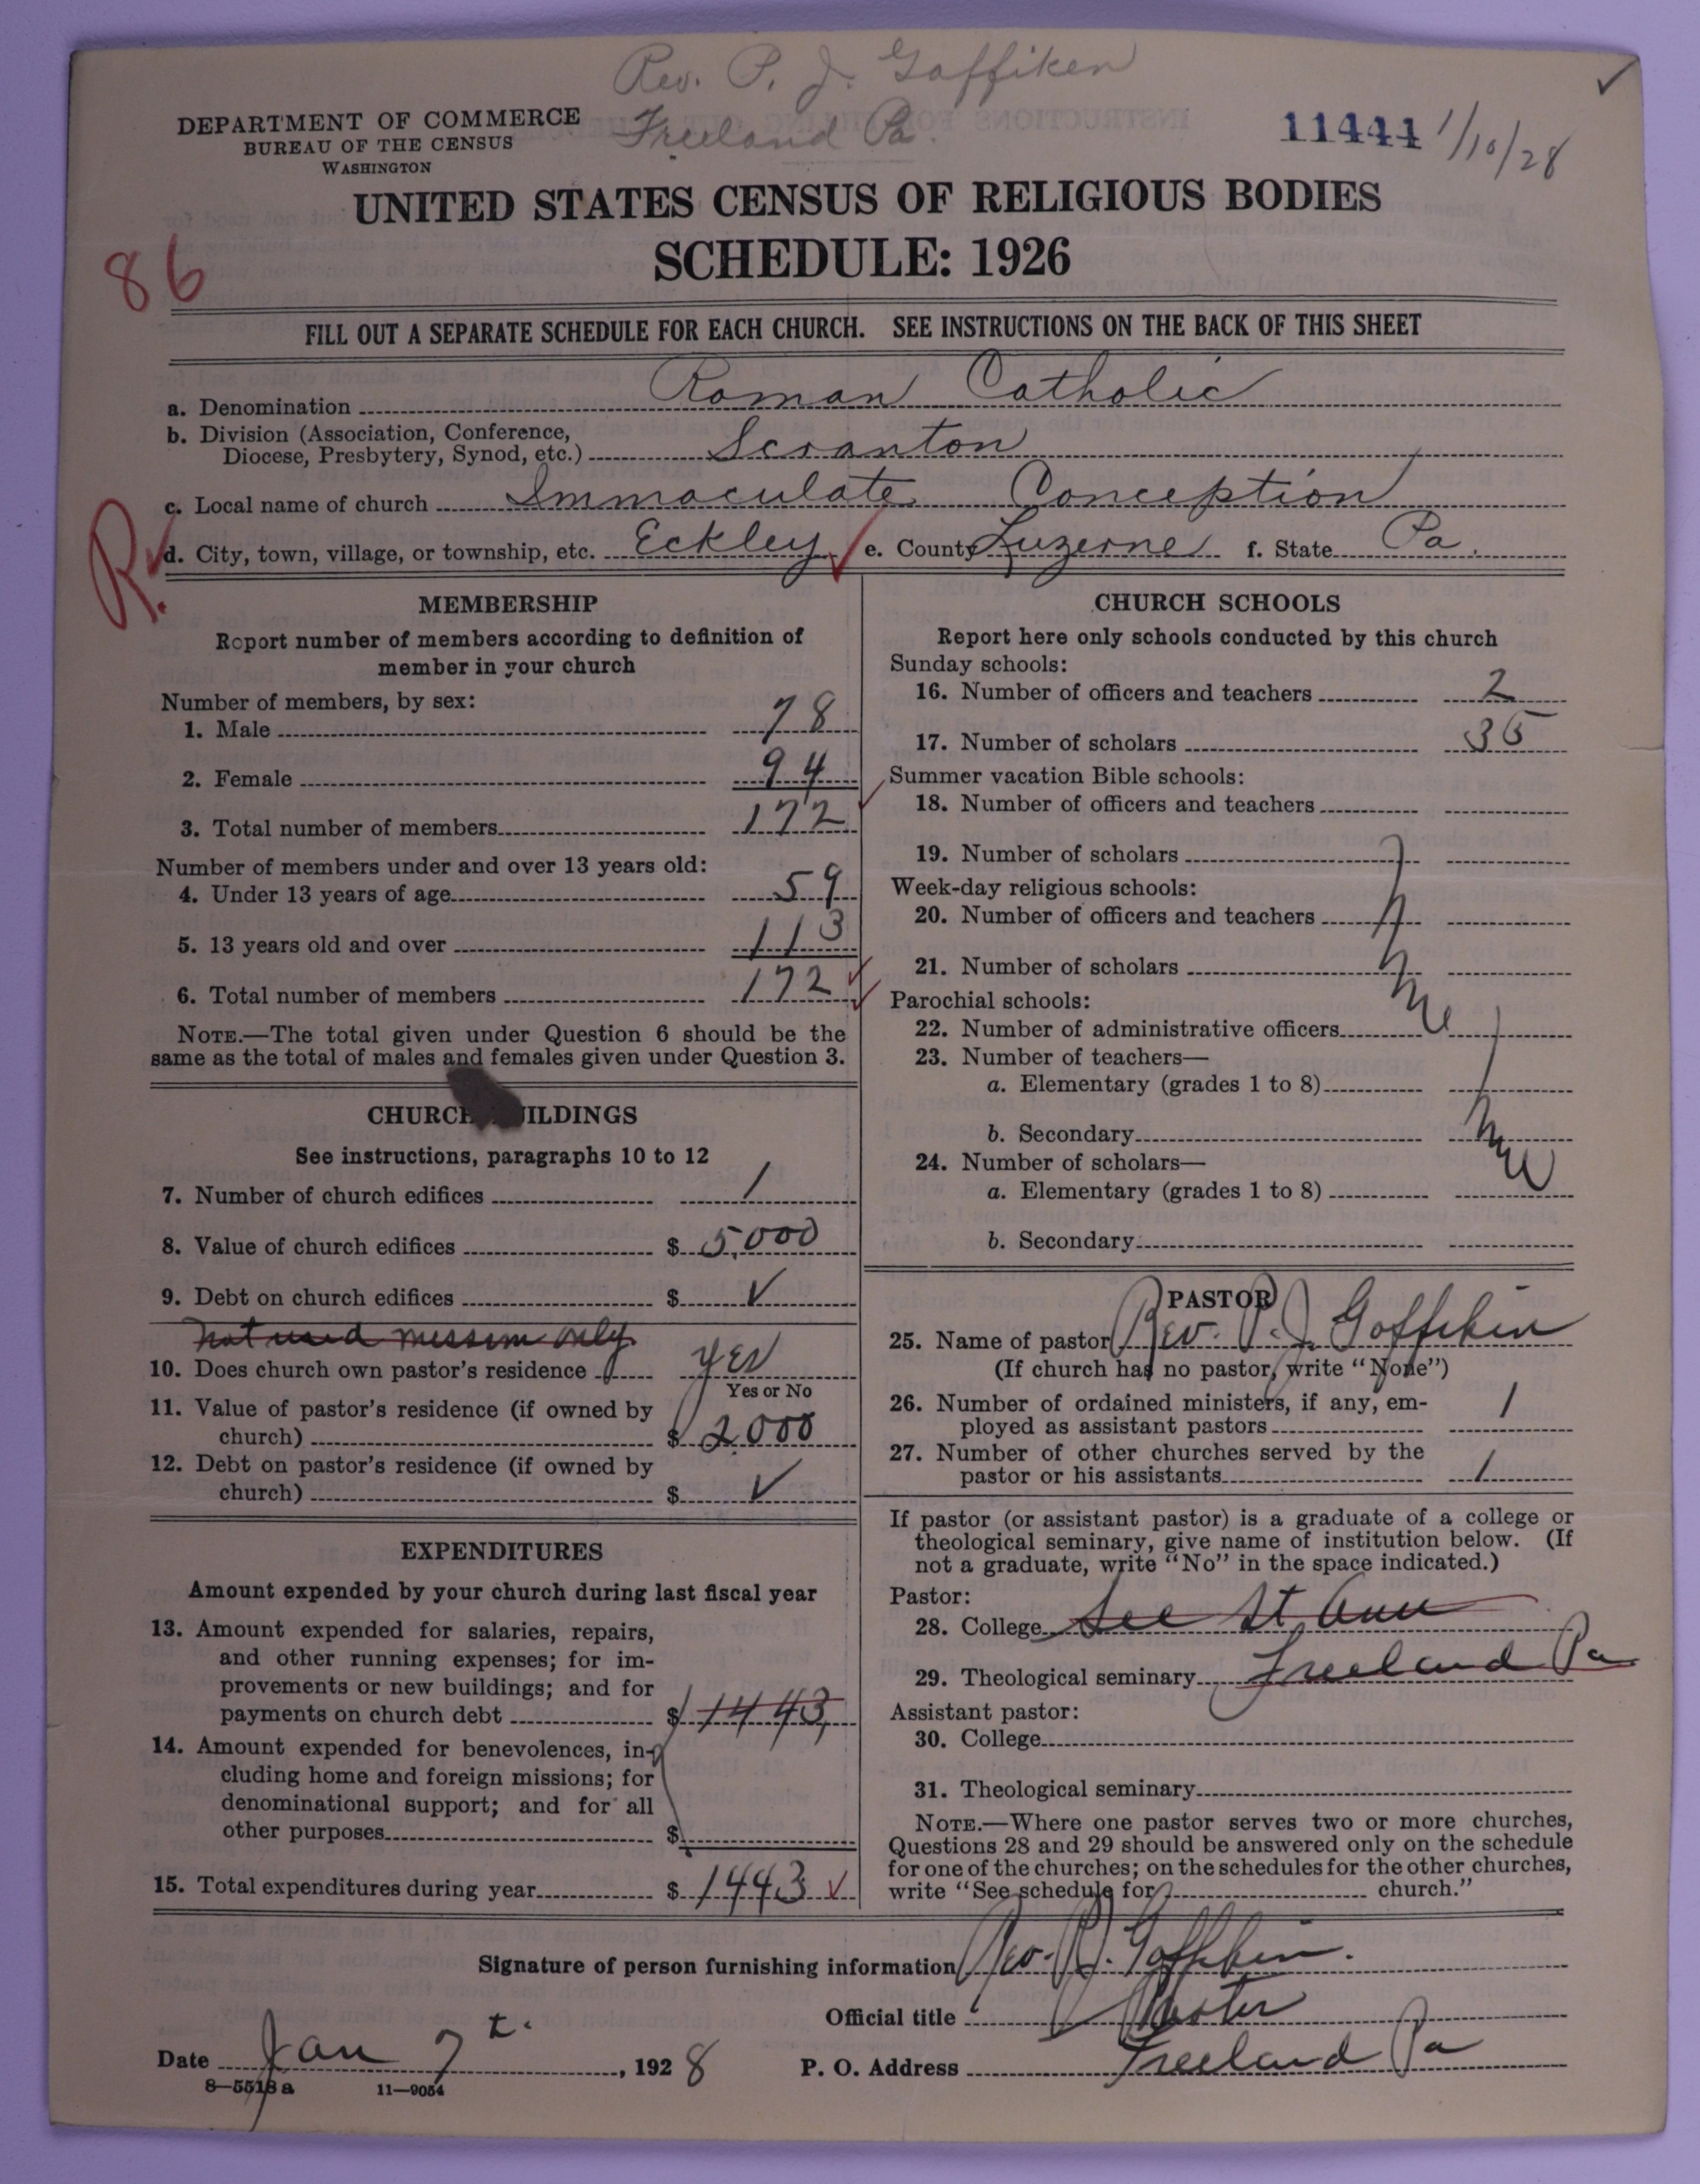 Rev. P. J. Gaffiken
Freeland Pa.
DEPARTMENT OF COMMERCE
BUREAU OF THE CENSUS
WASHINGTON
11444 1/10/28
UNITED STATES CENSUS OF RELIGIOUS BODIES
SCHEDULE: 1926
86
FILL OUT A SEPARATE SCHEDULE FOR EACH CHURCH. SEE INSTRUCTIONS ON THE BACK OF THIS SHEET
a. Denomination Roman Catholic
b. Division (Association, Conference,
Diocese, Presbytery, Synod, etc.) Scranton
c. Local name of church Immaculate Conception
R.
d. City, town, village, or township, etc. Eckley e. County Luzerne f. State Pa.
MEMBERSHIP
Report number of members according to definition of
member in your church
Number of members, by sex:
1. Male 78
2. Female 94
3. Total number of members 172
Number of members under and over 13 years old:
4. Under 13 years of age 59
5. 13 years old and over 113
6. Total number of members 172
NOTE.—The total given under Question 6 should be the
same as the total of males and females given under Question 3.
CHURCH BUILDINGS
See instructions, paragraphs 10 to 12
7. Number of church edifices 1
8. Value of church edifices $ 5,000
9. Debt on church edifices $ ✓
not used mission only
10. Does church own pastor's residence yes
Yes or No
11. Value of pastor's residence (if owned by
church) $ 2000
12. Debt on pastor's residence (if owned by
church) $ ✓
EXPENDITURES
Amount expended by your church during last fiscal year
13. Amount expended for salaries, repairs,
and other running expenses; for im-
provements or new buildings; and for
payments on church debt $ 1443
14. Amount expended for benevolences, in-
cluding home and foreign missions; for
denominational support; and for all
other purposes $
15. Total expenditures during year $ 1443
CHURCH SCHOOLS
Report here only schools conducted by this church
Sunday schools:
16. Number of officers and teachers 2
17. Number of scholars 35
Summer vacation Bible schools:
18. Number of officers and teachers
19. Number of scholars
Week-day religious schools:
20. Number of officers and teachers
21. Number of scholars
Parochial schools:
22. Number of administrative officers
23. Number of teachers—
a. Elementary (grades 1 to 8)
b. Secondary
24. Number of scholars—
a. Elementary (grades 1 to 8)
b. Secondary
PASTOR
25. Name of pastor Rev. P. J. Gaffikin
(If church has no pastor, write "None")
26. Number of ordained ministers, if any, em-
ployed as assistant pastors 1
27. Number of other churches served by the
pastor or his assistants 1
If pastor (or assistant pastor) is a graduate of a college or
theological seminary, give name of institution below. (If
not a graduate, write "No" in the space indicated.)
Pastor:
28. College See St Ann
29. Theological seminary Freeland Pa
Assistant pastor:
30. College
31. Theological seminary
NOTE.—Where one pastor serves two or more churches,
Questions 28 and 29 should be answered only on the schedule
for one of the churches; on the schedules for the other churches,
write "See schedule for church."
Signature of person furnishing information Rev. P. J. Gaffikin.
Official title Pastor
Date Jan 7 t. , 1928 P. O. Address Freeland Pa
8—5518 a 11—9054